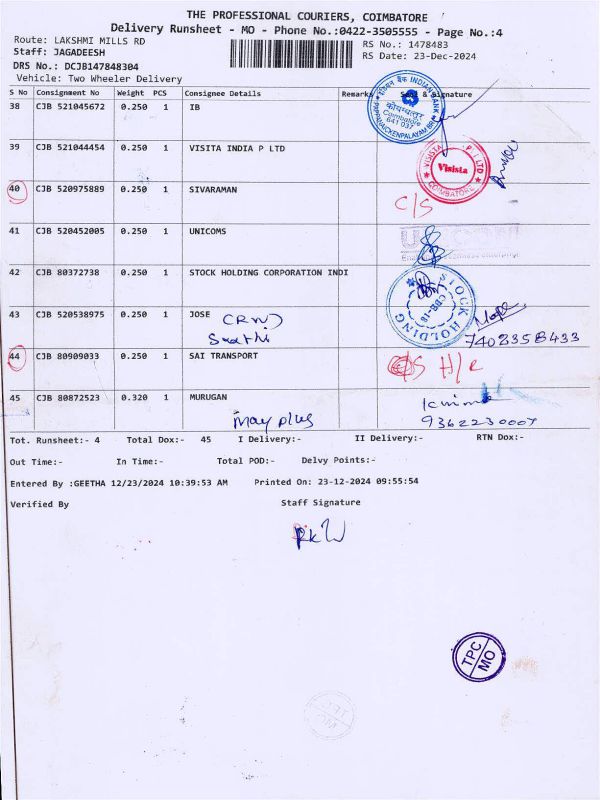 THE PROFESSIONAL COURIERS, COIMBATORE
Delivery Runsheet - MO - Phone No.:0422-3505555 - Page No.:4
Route: LAKSHMI MILLS RD
RS No.: 1478483
Staff: JAGADEESH
RS Date: 23-Dec-2024
DRS No.: DCJB147848304
Vehicle: Two Wheeler Delivery
S No Consignment No Weight PCS Consignee Details Remark Signature
38 CJB 521045672 0.250 1 IB
INDIAN BANK
कोयम्बत्तूर
Coimbatore
641 037
39 CJB 521044454 0.250 1 VISITA INDIA P LTD
VISISTA P LTD
Visista
COIMBATORE
40 CJB 520975889 0.250 1 SIVARAMAN
C/S
41 CJB 520452005 0.250 1 UNICOMS
42 CJB 80372738 0.250 1 STOCK HOLDING CORPORATION INDI
STOCK HOLDING
CBB-18
43 CJB 520538975 0.250 1 JOSE
7402358433
44 CJB 80909033 0.250 1 SAI TRANSPORT
C/S H/R
45 CJB 80872523 0.320 1 MURUGAN
may plus
9362230007
Tot. Runsheet:- 4 Total Dox:- 45 I Delivery:- II Delivery:- RTN Dox:-
Out Time:- In Time:- Total POD:- Delvy Points:-
Entered By :GEETHA 12/23/2024 10:39:53 AM Printed On: 23-12-2024 09:55:54
Verified By Staff Signature
TPC
MO